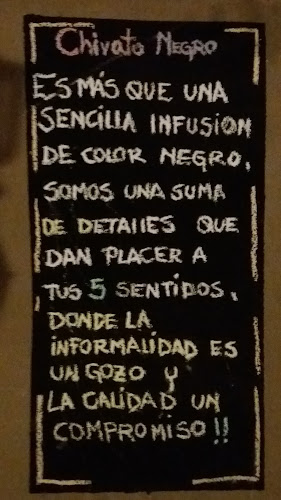 Chivato NEGRO
ES MÁS QUE UNA
SENCILLA INFUSION
DE COLOR NEGRO.
SOMOS UNA SUMA
DE DETALLES QUE
DAN PLACER A
TUS 5 SENTIDOS.
DONDE LA
INFORMALIDAD ES
UN GOZO Y
LA CALIDAD UN
COMPROMISO !!